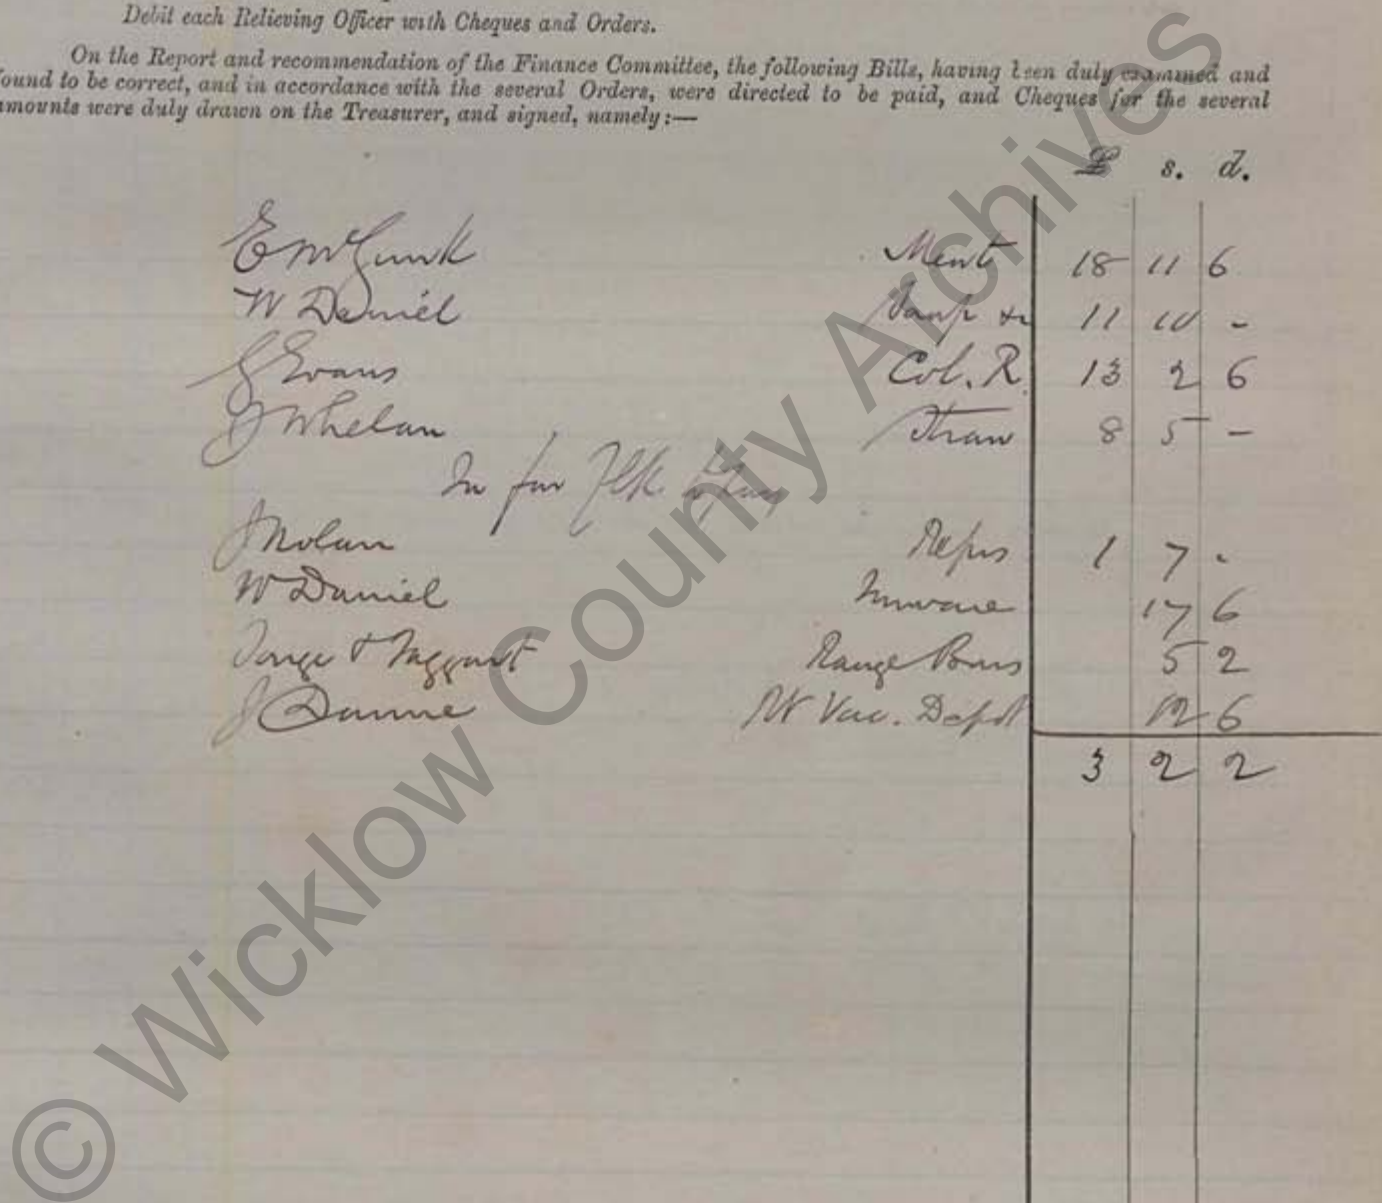 Debit each Relieving Officer with Cheques and Orders.
On the Report and recommendation of the Finance Committee, the following Bills, having been duly examined and
found to be correct, and in accordance with the several Orders, were directed to be paid, and Cheques for the several
amounts were duly drawn on the Treasurer, and signed, namely:—
£ s. d.
E 18 11 6
W Daniel 11 10 -
G Evans Col. R. 13 2 6
J Whelan Straw 8 5 -
In for
J Nolan Reprs 1 7 -
W Daniel 17 6
& Taggart Range 5 2
J Dunne Vac. Depot 12 6
3 2 2
© Wicklow County Archives